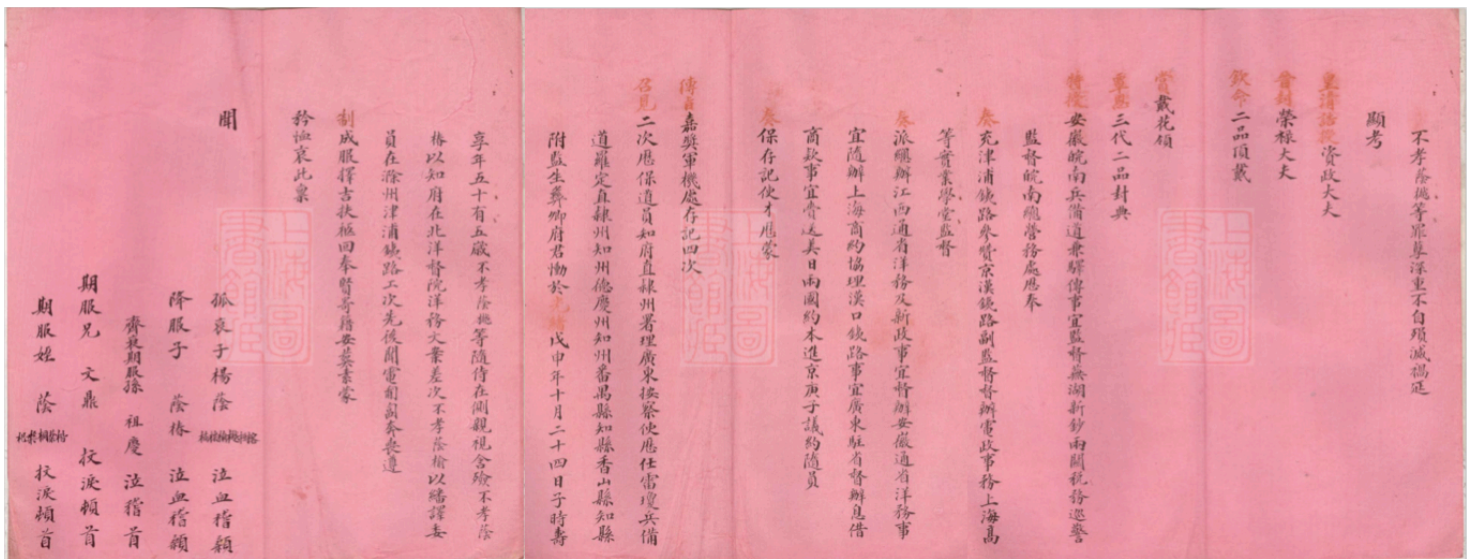 不孝蔭桃等罪孽深重不自殞滅禍延
顯考
皇清誥授資政大夫
會封榮祿大夫
欽命二品頂戴
賞戴花翎
覃恩三代二品封典
特授安徽皖南兵備道兼驛傳事宜監督蕪湖新鈔兩關稅務巡警
監督皖南總營務處歷奉
奏充津浦鐵路參贊京漢鐵路副監督督辦電政事務上海高
等實業學堂監督
奏派總辦江西通省洋務及新政事宜督辦安徽通省洋務事
宜隨辦上海商約協理漢口鐵路事宜廣東駐省督辦息借
商款事宜賫送美日兩國約本進京庚子議約隨員
奏保存記使才歷蒙
傳旨嘉獎軍機處存記四次
召見二次歷保道員知府直隸州署理廣東按察使歷任雷瓊兵備
道羅定直隸州知州德慶州知州番禺縣知縣香山縣知縣
附監生彝卿府君慟於光緒戊申年十月二十四日子時壽
享年五十有五歲不孝蔭桃等隨侍在側親視含殮不孝蔭
椿以知府在北洋督院洋務文案差次不孝蔭榆以繙譯委
員在滁州津浦鐵路工次先後聞電匍匐奔喪遵
制成服擇吉扶柩回奉賢寄籍安葬素蒙
矜恤哀此稟
聞
孤哀子楊蔭 泣血稽顙
降服子 蔭椿 泣血稽顙
齊衰期服孫 祖慶 泣稽首
期服兄 文鼎 抆淚頓首
期服姪 蔭 抆淚頓首